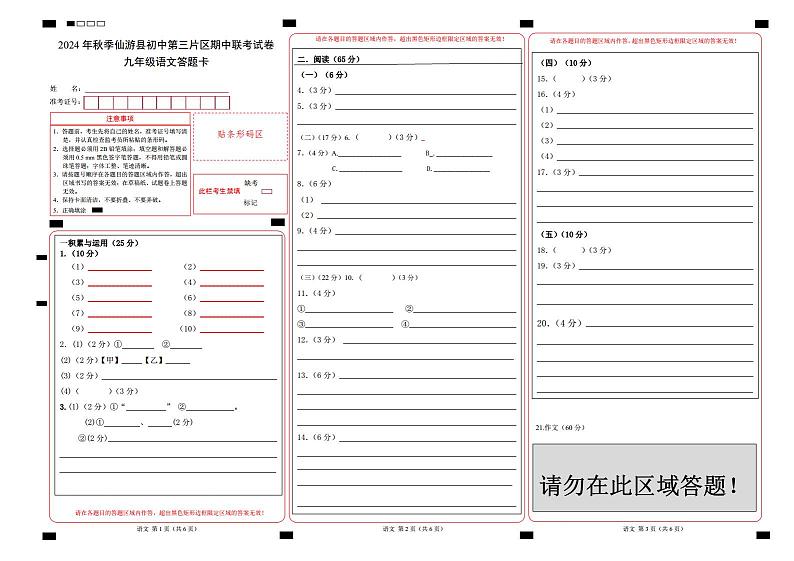 2024 年秋季仙游县初中第三片区期中联考试卷
九年级语文答题卡
姓 名:
准考证号:
注意事项
1. 答题前,考生先将自己的姓名,准考证号填写清
楚,并认真检查监考员所粘贴的条形码。
2. 选择题必须用 2B 铅笔填涂,填空题和解答题必
须用 0.5 mm 黑色签字笔答题,不得用铅笔或圆
珠笔答题;字体工整、笔迹清晰。
3. 请按题号顺序在各题目的答题区域内作答,超出
区域书写的答案无效,在草稿纸、试题卷上答题
无效。
4. 保持卡面清洁,不要折叠、不要弄破。
5. 正确填涂
贴条形码区
此栏考生禁填
缺考
标记
一积累与运用(25 分)
1.(10 分)
(1) (2)
(3) (4)
(5) (6)
(7) (8)
(9) (10)
2.(1)(2 分)① ②
(2)(2 分)【甲】 【乙】
(3)(2 分)
(4)( )(3 分)
3.(1)(2 分)①“ ” ② 。
(2)① 、 (2 分)
②(2 分)
请在各题目的答题区域内作答,超出黑色矩形边框限定区域的答案无效!
语文 第 1 页(共 6 页)
请在各题目的答题区域内作答,超出黑色矩形边框限定区域的答案无效!
二.阅读(65 分)
(一)(6 分)
4.(3 分)
5.(3 分)
(二)(17 分)6.( )(3 分)
7.(4 分)A. B.
C. D.
8.(6 分)
(1)
(2)
9.(4 分)
(三)(22 分)10.( )(3 分)
11.(4 分)
① ②
③ ④
12.(3 分)
13.(6 分)
14.(6 分)
语文 第 2 页(共 6 页)
请在各题目的答题区域内作答,超出黑色矩形边框限定区域的答案无效!
(四)(10 分)
15.( )(3 分)
16.(4 分)
(1)
(2)
(3)
(4)
17.(3 分)
(五)(10 分)
18.( )(3 分)
19.(3 分)
20.(4 分)
21.作文(60 分)
请勿在此区域答题!
语文 第 3 页(共 6 页)